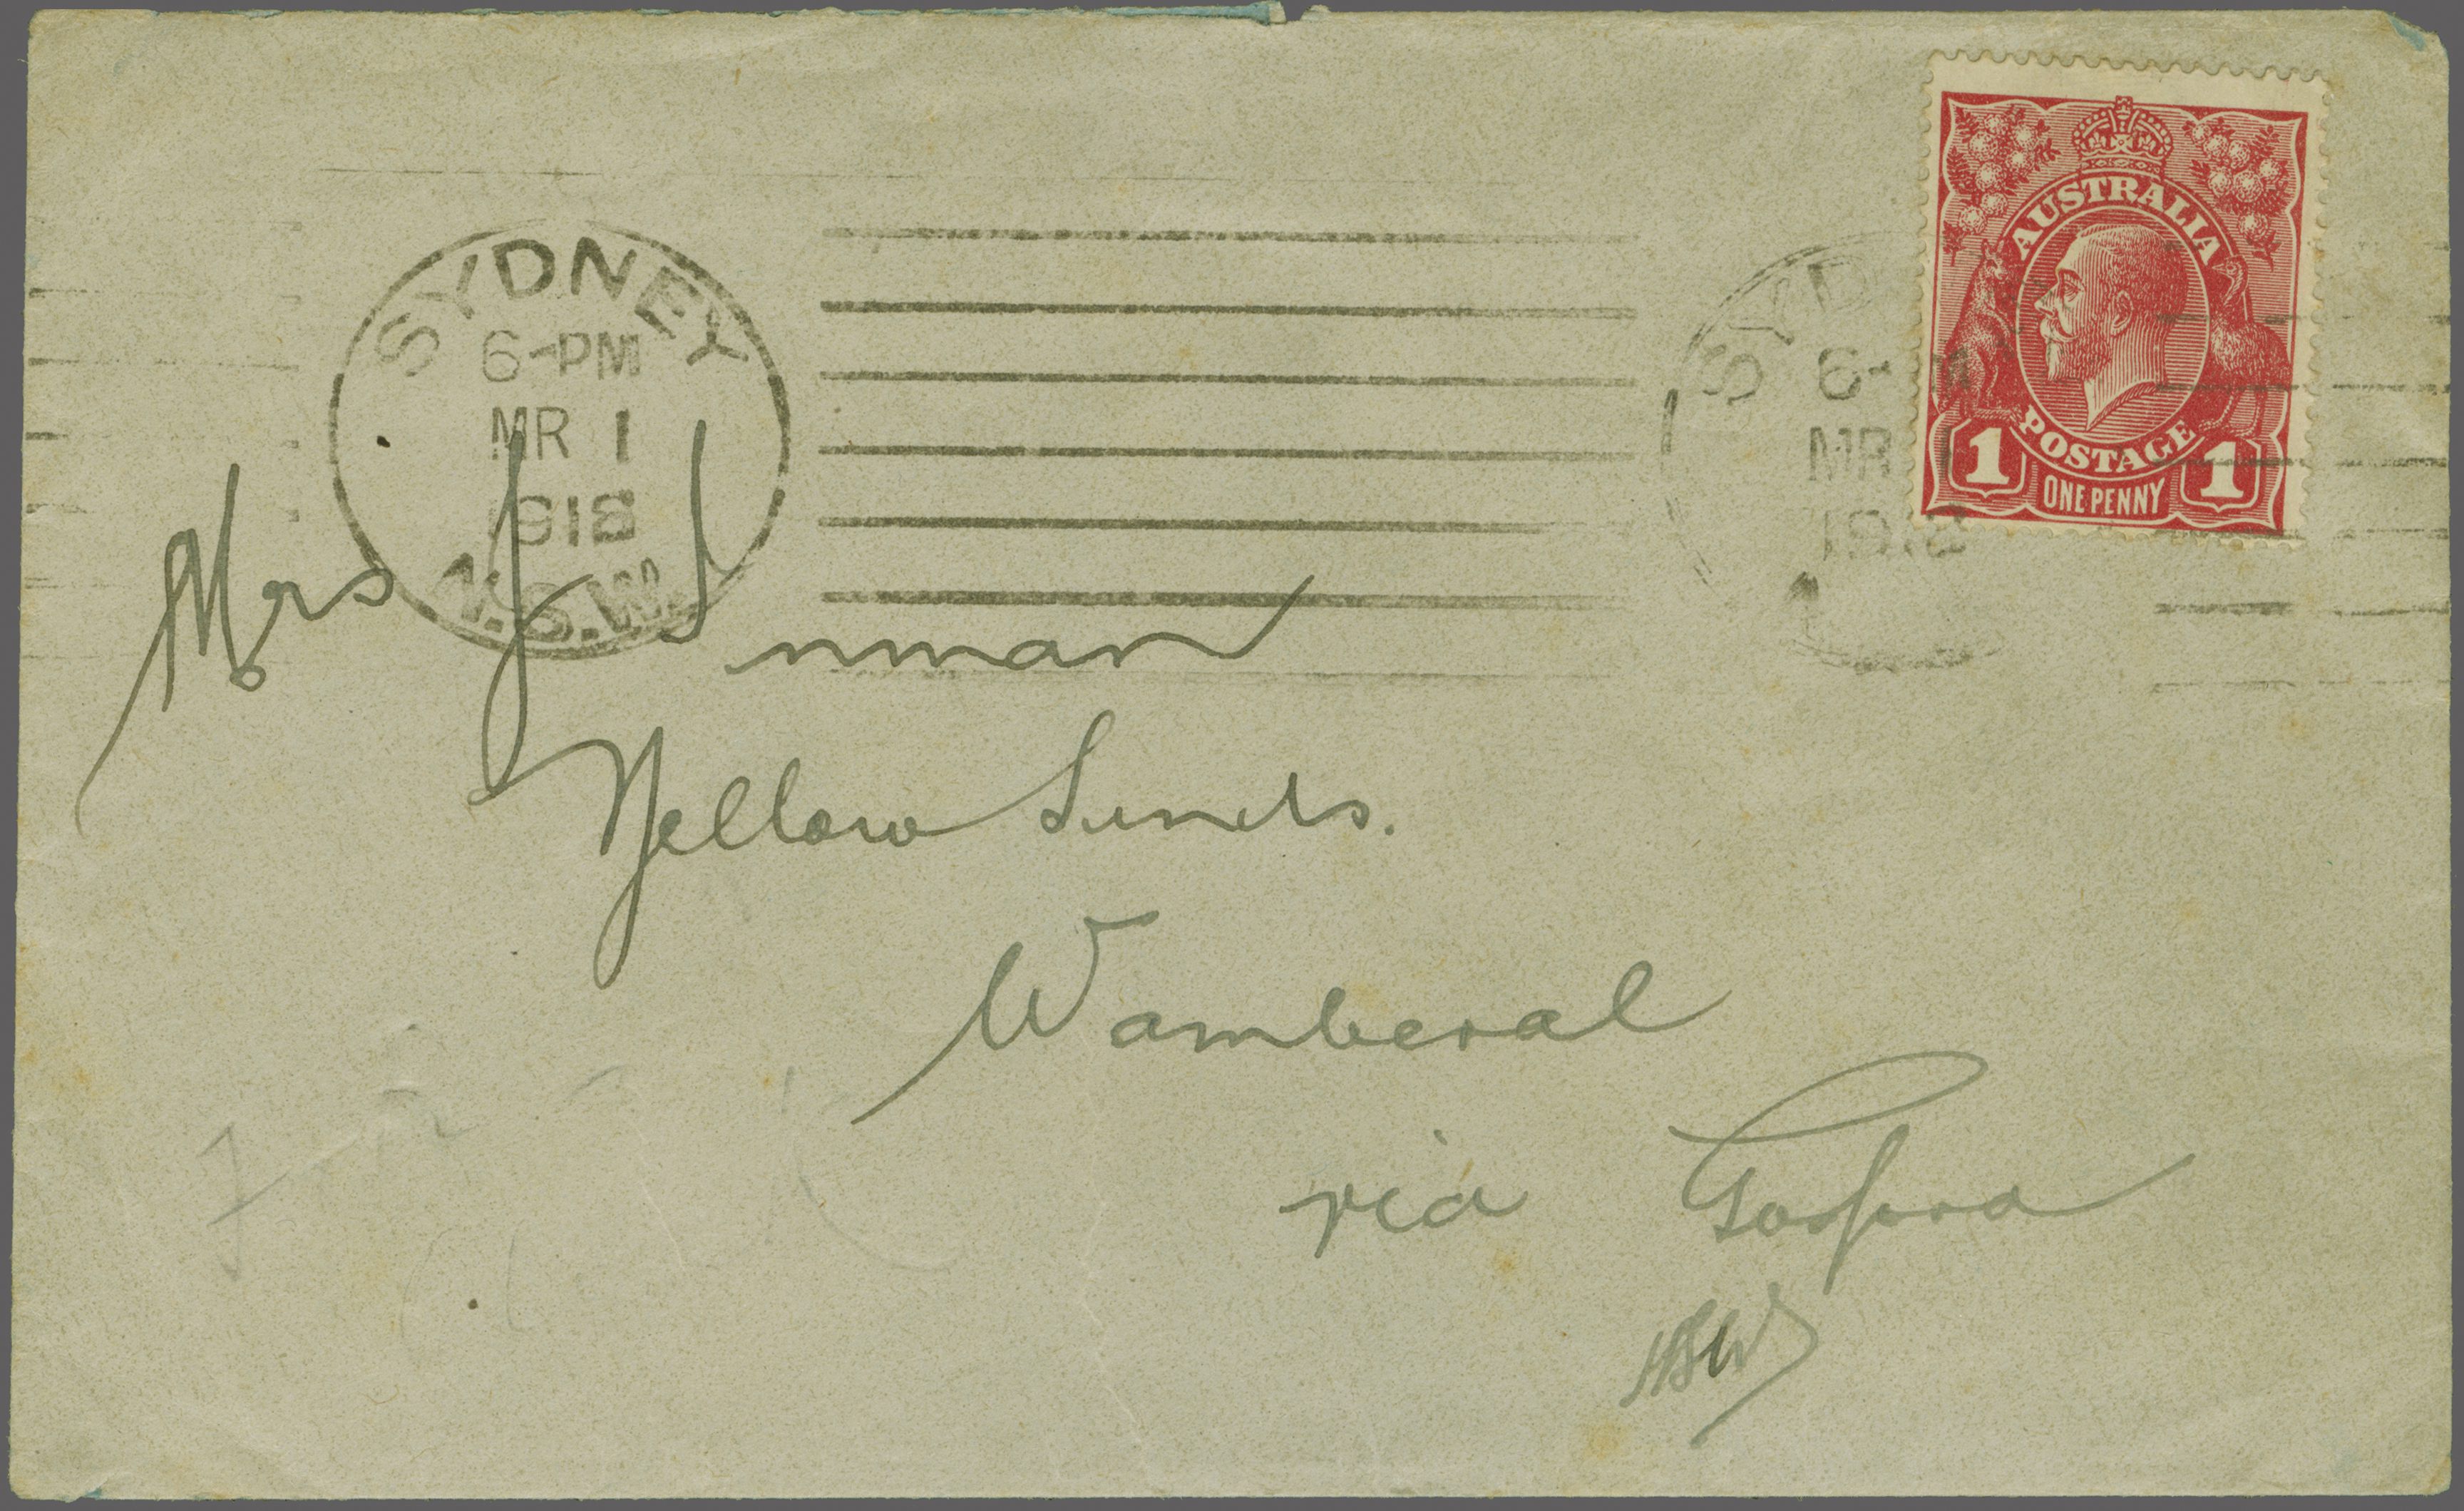 SYDNEY
6-PM
MR 1
1918
N.S.W.
SYD
6- M
MR 1
1918
AUSTRALIA
POSTAGE
1 ONE PENNY 1
Mrs J Inman
Yellow Sands.
Wamberal
via Gosford
NSW